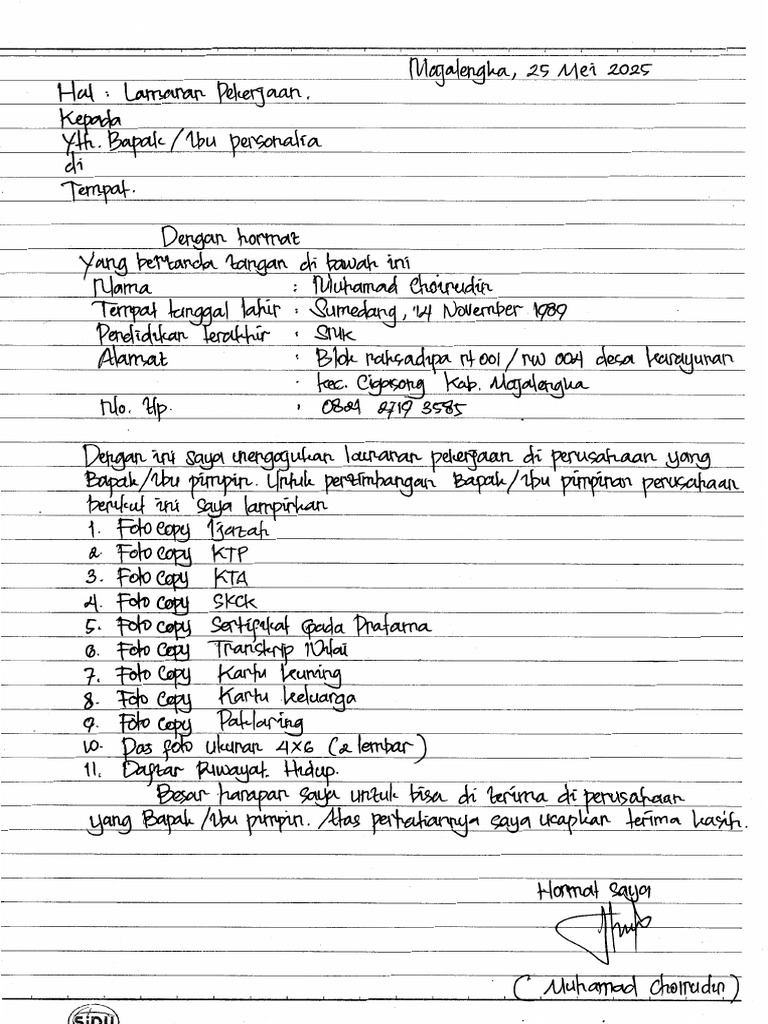 Majalengka, 25 Mei 2025
Hal : Lamaran Pekerjaan.
Kepada
Yth. Bapak/Ibu personalia
di
Tempat.
Dengan hormat
Yang bertanda tangan di bawah ini
Nama : Muhamad Choirudin
Tempat tanggal lahir : Sumedang, 14 November 1989
Pendidikan terakhir : SMK
Alamat : Blok raksadipa rt 001 / rw 004 desa karayunan
kec. Cigasong Kab. Majalengka
No. tlp. : 0824 2719 3585
Dengan ini saya mengajukan lamaran pekerjaan di perusahaan yang
Bapak/Ibu pimpin. Untuk pertimbangan Bapak/Ibu pimpinan perusahaan
berikut ini saya lampirkan
1. Foto copy Ijazah
2. Foto copy KTP
3. Foto copy KTA
4. Foto copy SKCK
5. Foto copy Sertifikat Gada Pratama
6. Foto copy Transkrip Nilai
7. Foto copy Kartu kuning
8. Foto copy Kartu keluarga
9. Foto copy Paklaring
10. Pas foto ukuran 4x6 (2 lembar)
11. Daftar Riwayat Hidup.
Besar harapan saya untuk bisa di terima di perusahaan
yang Bapak/Ibu pimpin. Atas perhatiannya saya ucapkan terima kasih.
Hormat saya
(Muhamad Choirudin)
SiDU